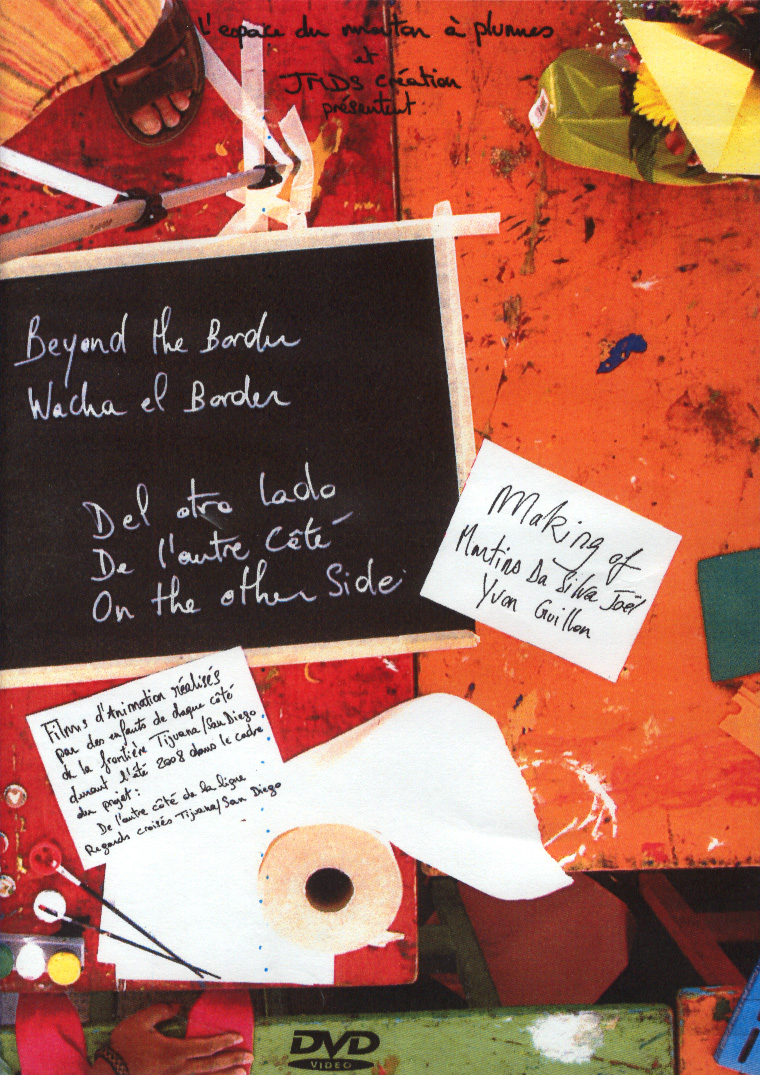 L'espace du mouton à plumes
et
JMDS création
présentent
Beyond the Border
Wacha el Border
Del otro lado
De l'autre Côté
On the other Side
Making of
Martins Da Silva Joël
Yvon Guillon
Films d'Animation réalisés
par des enfants de chaque côté
de la frontière Tijuana/San Diego
durant l'été 2008 dans le cadre
du projet:
De l'autre côté de la ligne
Regards croisés Tijuana/San Diego
DVD
VIDEO